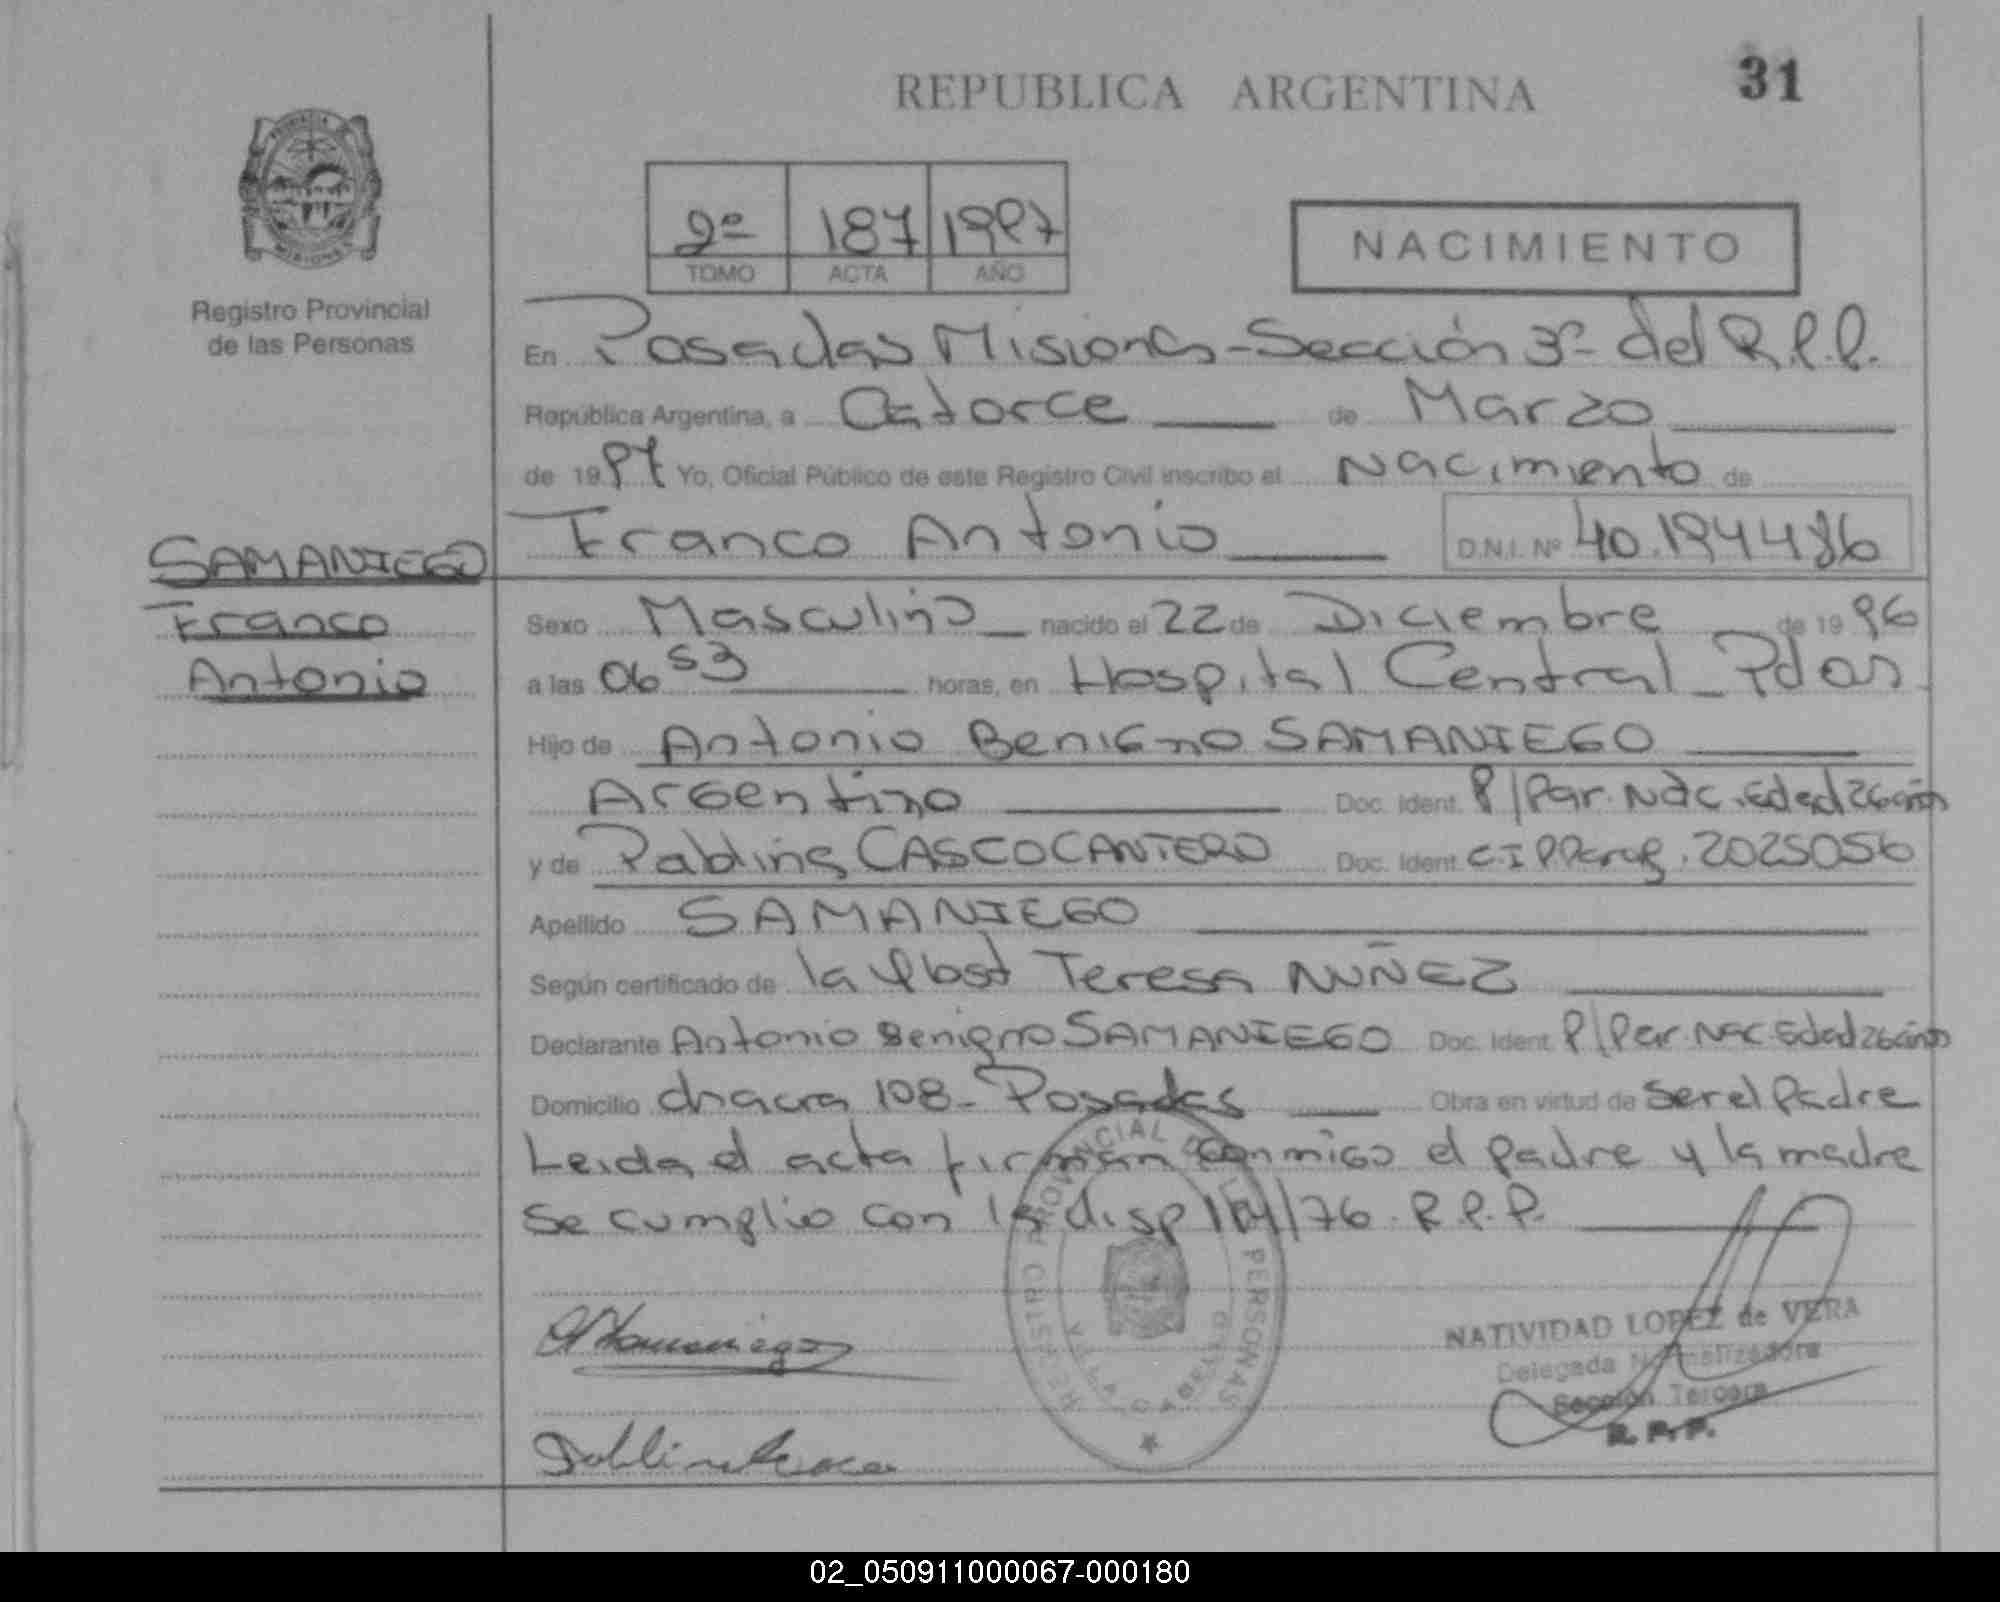 REPUBLICA ARGENTINA
31
PROVINCIA DE
MISIONES
Registro Provincial
de las Personas
2º 187 1997
TOMO ACTA AÑO
NACIMIENTO
En Posadas Misiones - Sección 3º del R.P.P.
República Argentina, a Catorce de Marzo
de 1997 Yo, Oficial Público de este Registro Civil inscribo el Nacimiento de
Franco Antonio D.N.I. Nº 40.194486
SAMANIEGO
Franco
Antonio
Sexo Masculino nacido el 22 de Diciembre de 1996
a las 06 53 horas, en Hospital Central - Pdas
Hijo de Antonio Benigno SAMANIEGO
Argentino Doc. Ident. P/Par. Nac. Edad 26 años
y de Pablina CASCO CANTERO Doc. Ident. C.I Parag. 2025056
Apellido SAMANIEGO
Según certificado de la Obst Teresa NUÑEZ
Declarante Antonio Benigno SAMANIEGO Doc. Ident. P/Par. Nac. Edad 26 años
Domicilio chacra 108 - Posadas Obra en virtud de ser el Padre
Leida el acta firman conmigo el padre y la madre
se cumplio con la disp /76. R.P.P.
REGISTRO PROVINCIAL DE LAS PERSONAS
NATIVIDAD LOPEZ de VERA
Delegada Normalizadora
Sección Tercera
R.P.P.
02_050911000067-000180